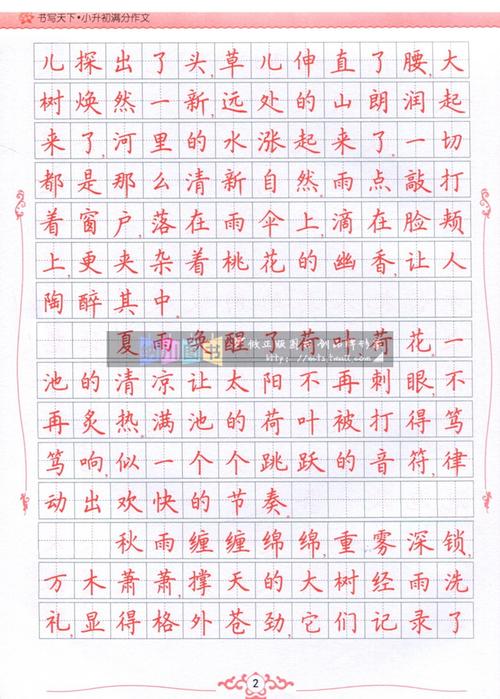 书写天下•小升初满分作文
儿探出了头,草儿伸直了腰,大
树焕然一新,远处的山朗润起
来了,河里的水涨起来了,一切
都是那么清新自然,雨点敲打
着窗户,落在雨伞上,滴在脸颊
上,更夹杂着桃花的幽香,让人
陶醉其中.
夏雨唤醒了荷叶荷花,一
池的清凉让太阳不再刺眼,不
再炙热,满池的荷叶被打得笃
笃响,似一个个跳跃的音符,律
动出欢快的节奏.
秋雨缠缠绵绵,重雾深锁,
万木萧萧,撑天的大树经雨洗
礼,显得格外苍劲,它们记录了
2